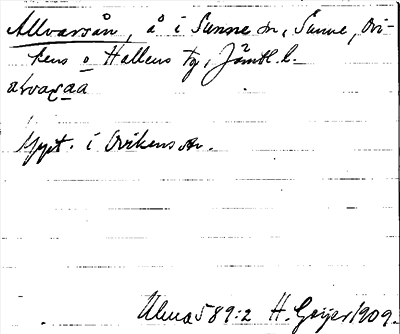 Allvarsån, å i Sunne sn, Sunne, Ovi-
kens o Hallens tg, Jämtl. l.
alvaṣaa
Uppt. i Ovikens sn.
Ulma 589:2 H. Geijer 1909.